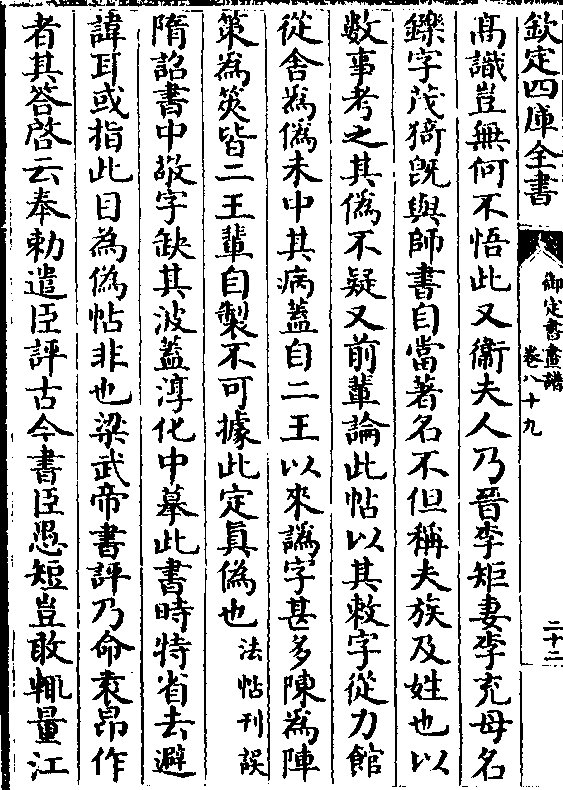 欽定四庫全書
御定書畫譜
卷八十九
二十二
髙識豈無何不悟此又衞夫人乃晉李矩妻李充母名
鑠字茂猗既與師書自當著名不但稱夫族及姓也以
數事考之其偽不疑又前輩論此帖以其敕字從力館
從舍為偽未中其病葢自二王以來譌字甚多陳為陣
策為筴皆二王輩自製不可據此定眞偽也法帖刋誤
隋詔書中敬字缺其波葢淳化中摹此書時特省去避
諱耳或指此目為偽帖非也梁武帝書評乃命袁昂作
者其答啓云奉勅遣臣評古今書臣愚短豈敢輒量江